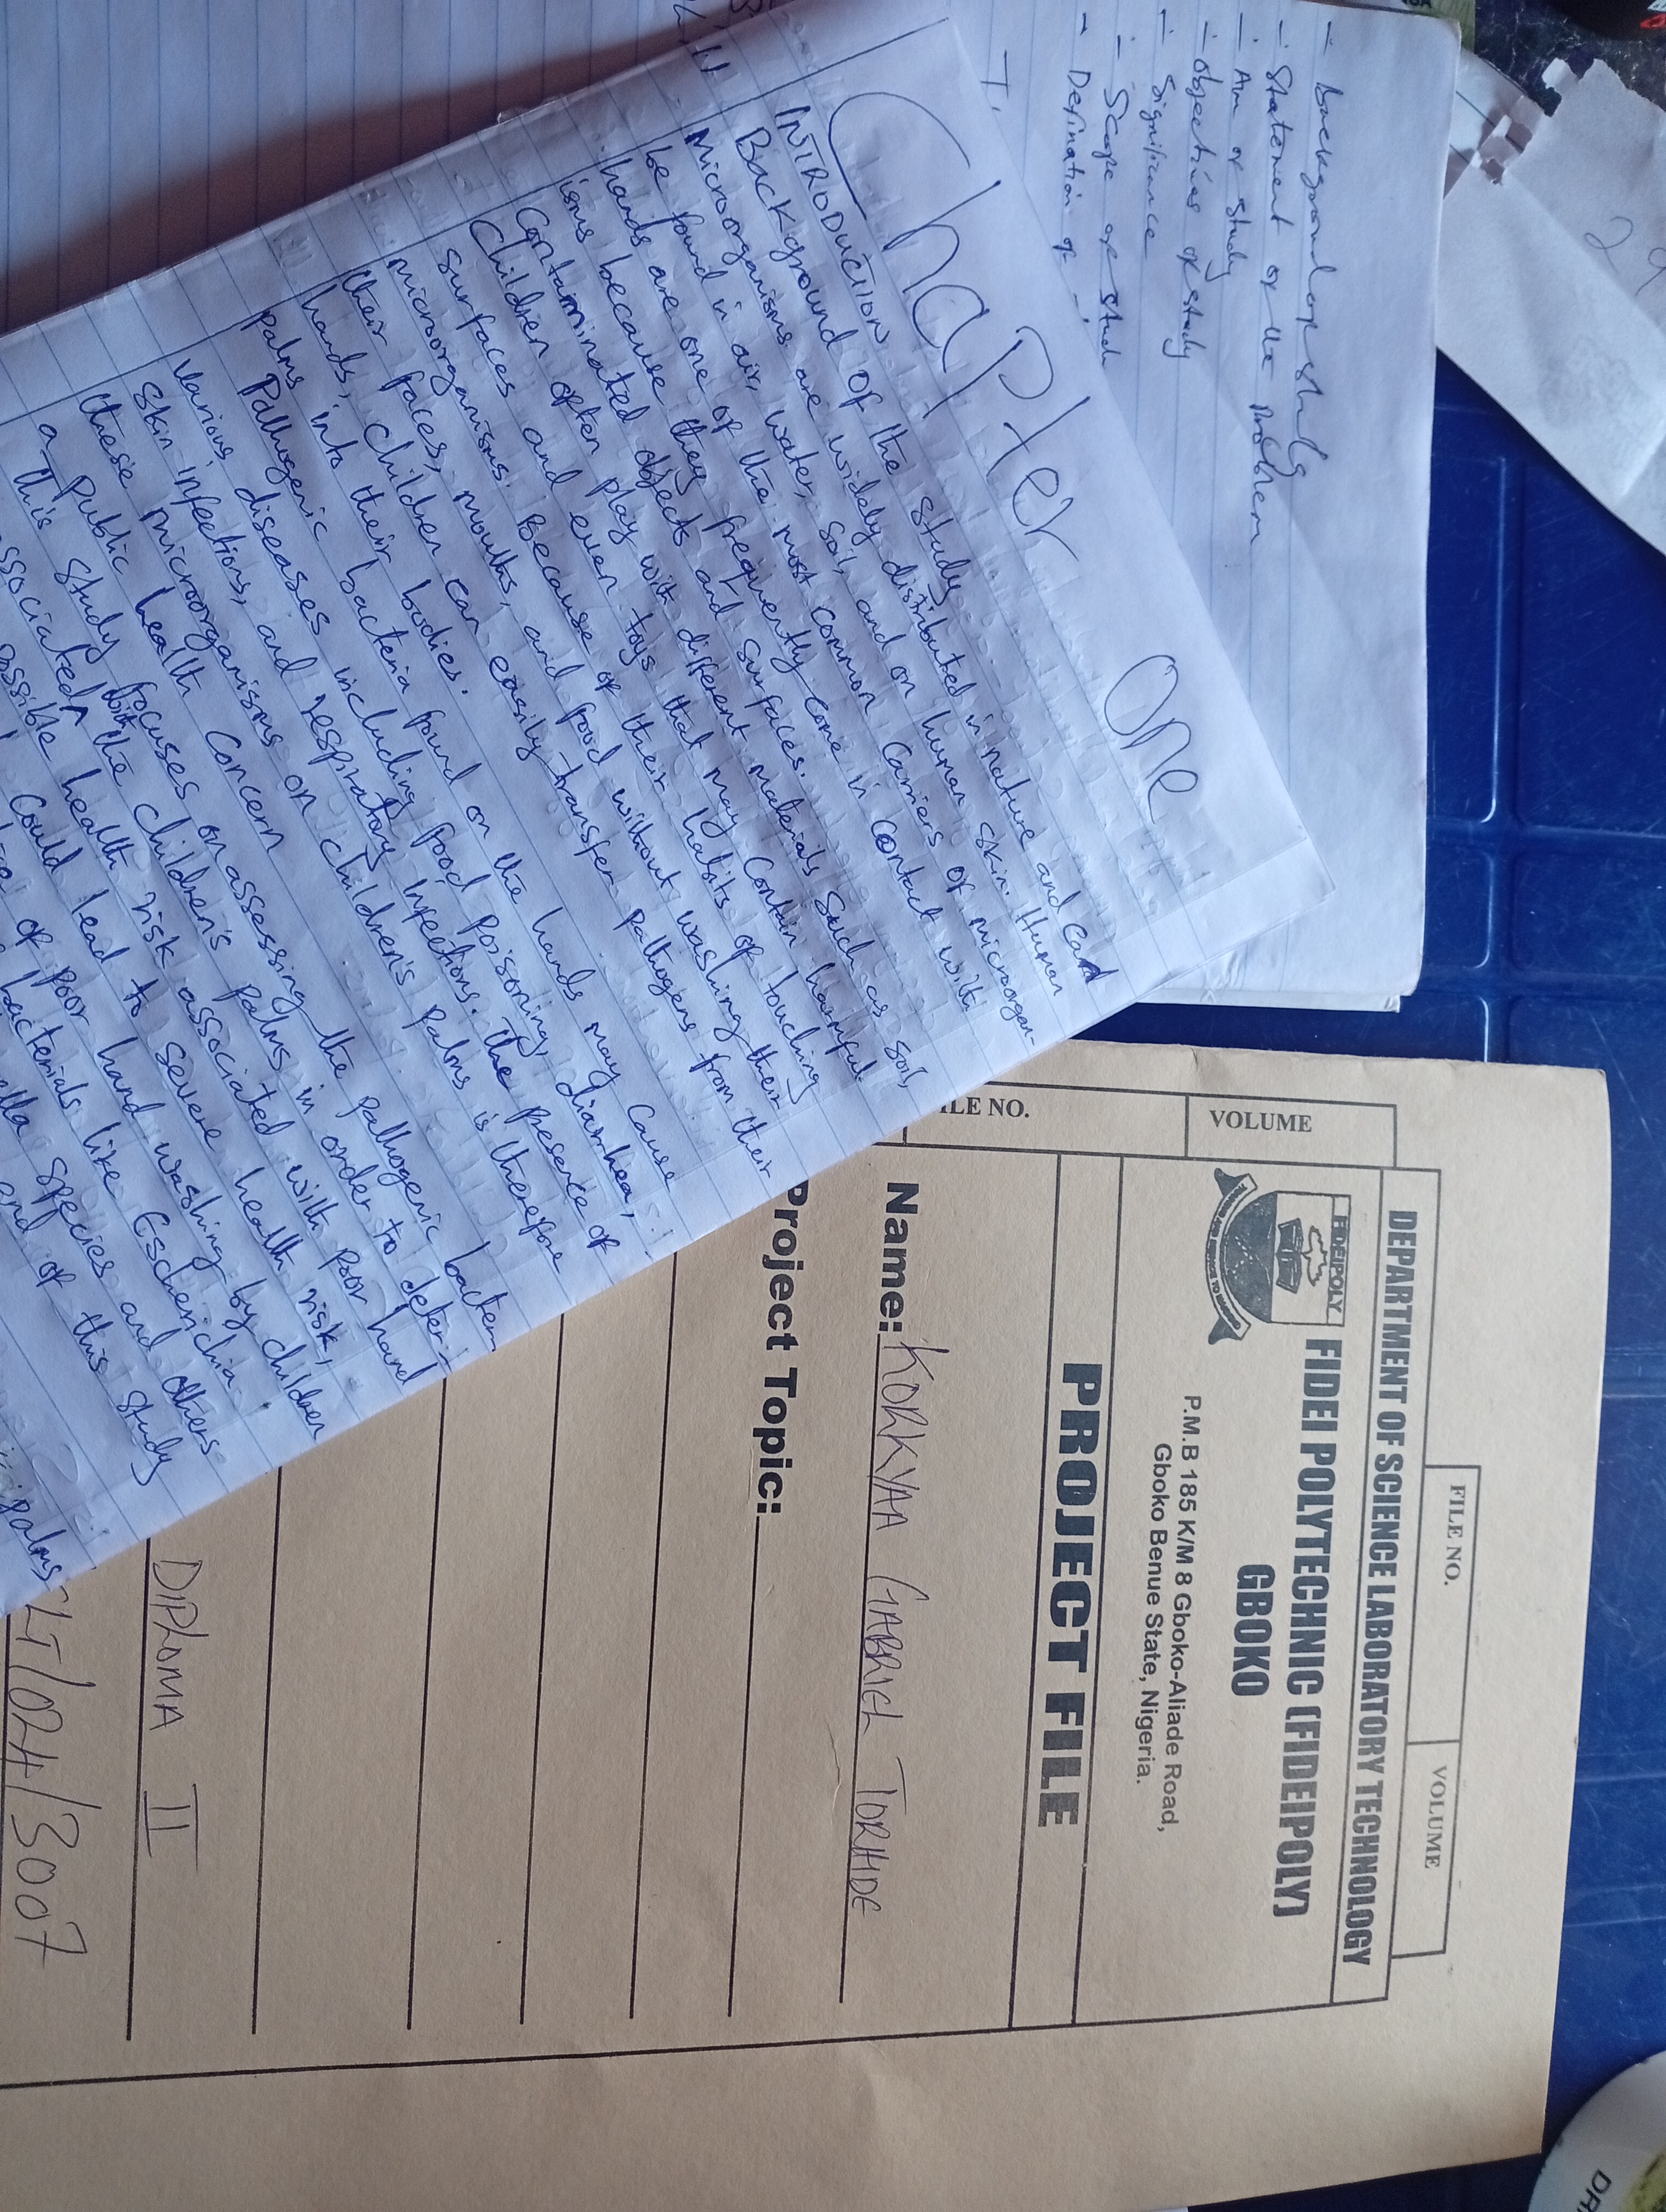 - background of study
- Statement of the problem
- Aim of study
- objectives of study
- Significance
- Scope of stud
- Defination of -
Chapter One
INTRODUCTION
Background OF the study
Microorganisms are widely distributed in nature and can
be found in air, water, soil, and on human skin. Human
hands are one of the most common carriers of microorgan-
isms because they frequently come in contact with
Contaminated objects and surfaces.
Children often play with different materials such as soil,
surfaces and even toys that may contain harmful
microorganisms. Because of their habits of touching
their faces, mouths, and food without washing their
hands, children can easily transfer pathogens from their
palms into their bodies.
Pathogenic bacteria found on the hands may cause
various diseases including food poisoning, diarrhea,
skin infections, and respiratory infections. The presence of
these microorganisms on children's palms is therefore
a public health concern
this study focuses on assessing the pathogenic bacter
associated with the children's palms in order to deter-
possible health risk associated with poor hand
could lead to severe health risk,
of poor hand washing by children
bacterials like Escherichia
ella species and others
end of this study
palms
FILE NO.
VOLUME
DEPARTMENT OF SCIENCE LABORATORY TECHNOLOGY
FIDEIPOLY
FIDEI POLYTECHNIC (FIDEIPOLY)
GBOKO
P.M.B 185 K/M 8 Gboko-Aliade Road,
Gboko Benue State, Nigeria.
PROJECT FILE
ILE NO.
VOLUME
Name: KORKYAA GABRIEL TORHIDE
Project Topic:
DIPLOMA II
LT/024/3007